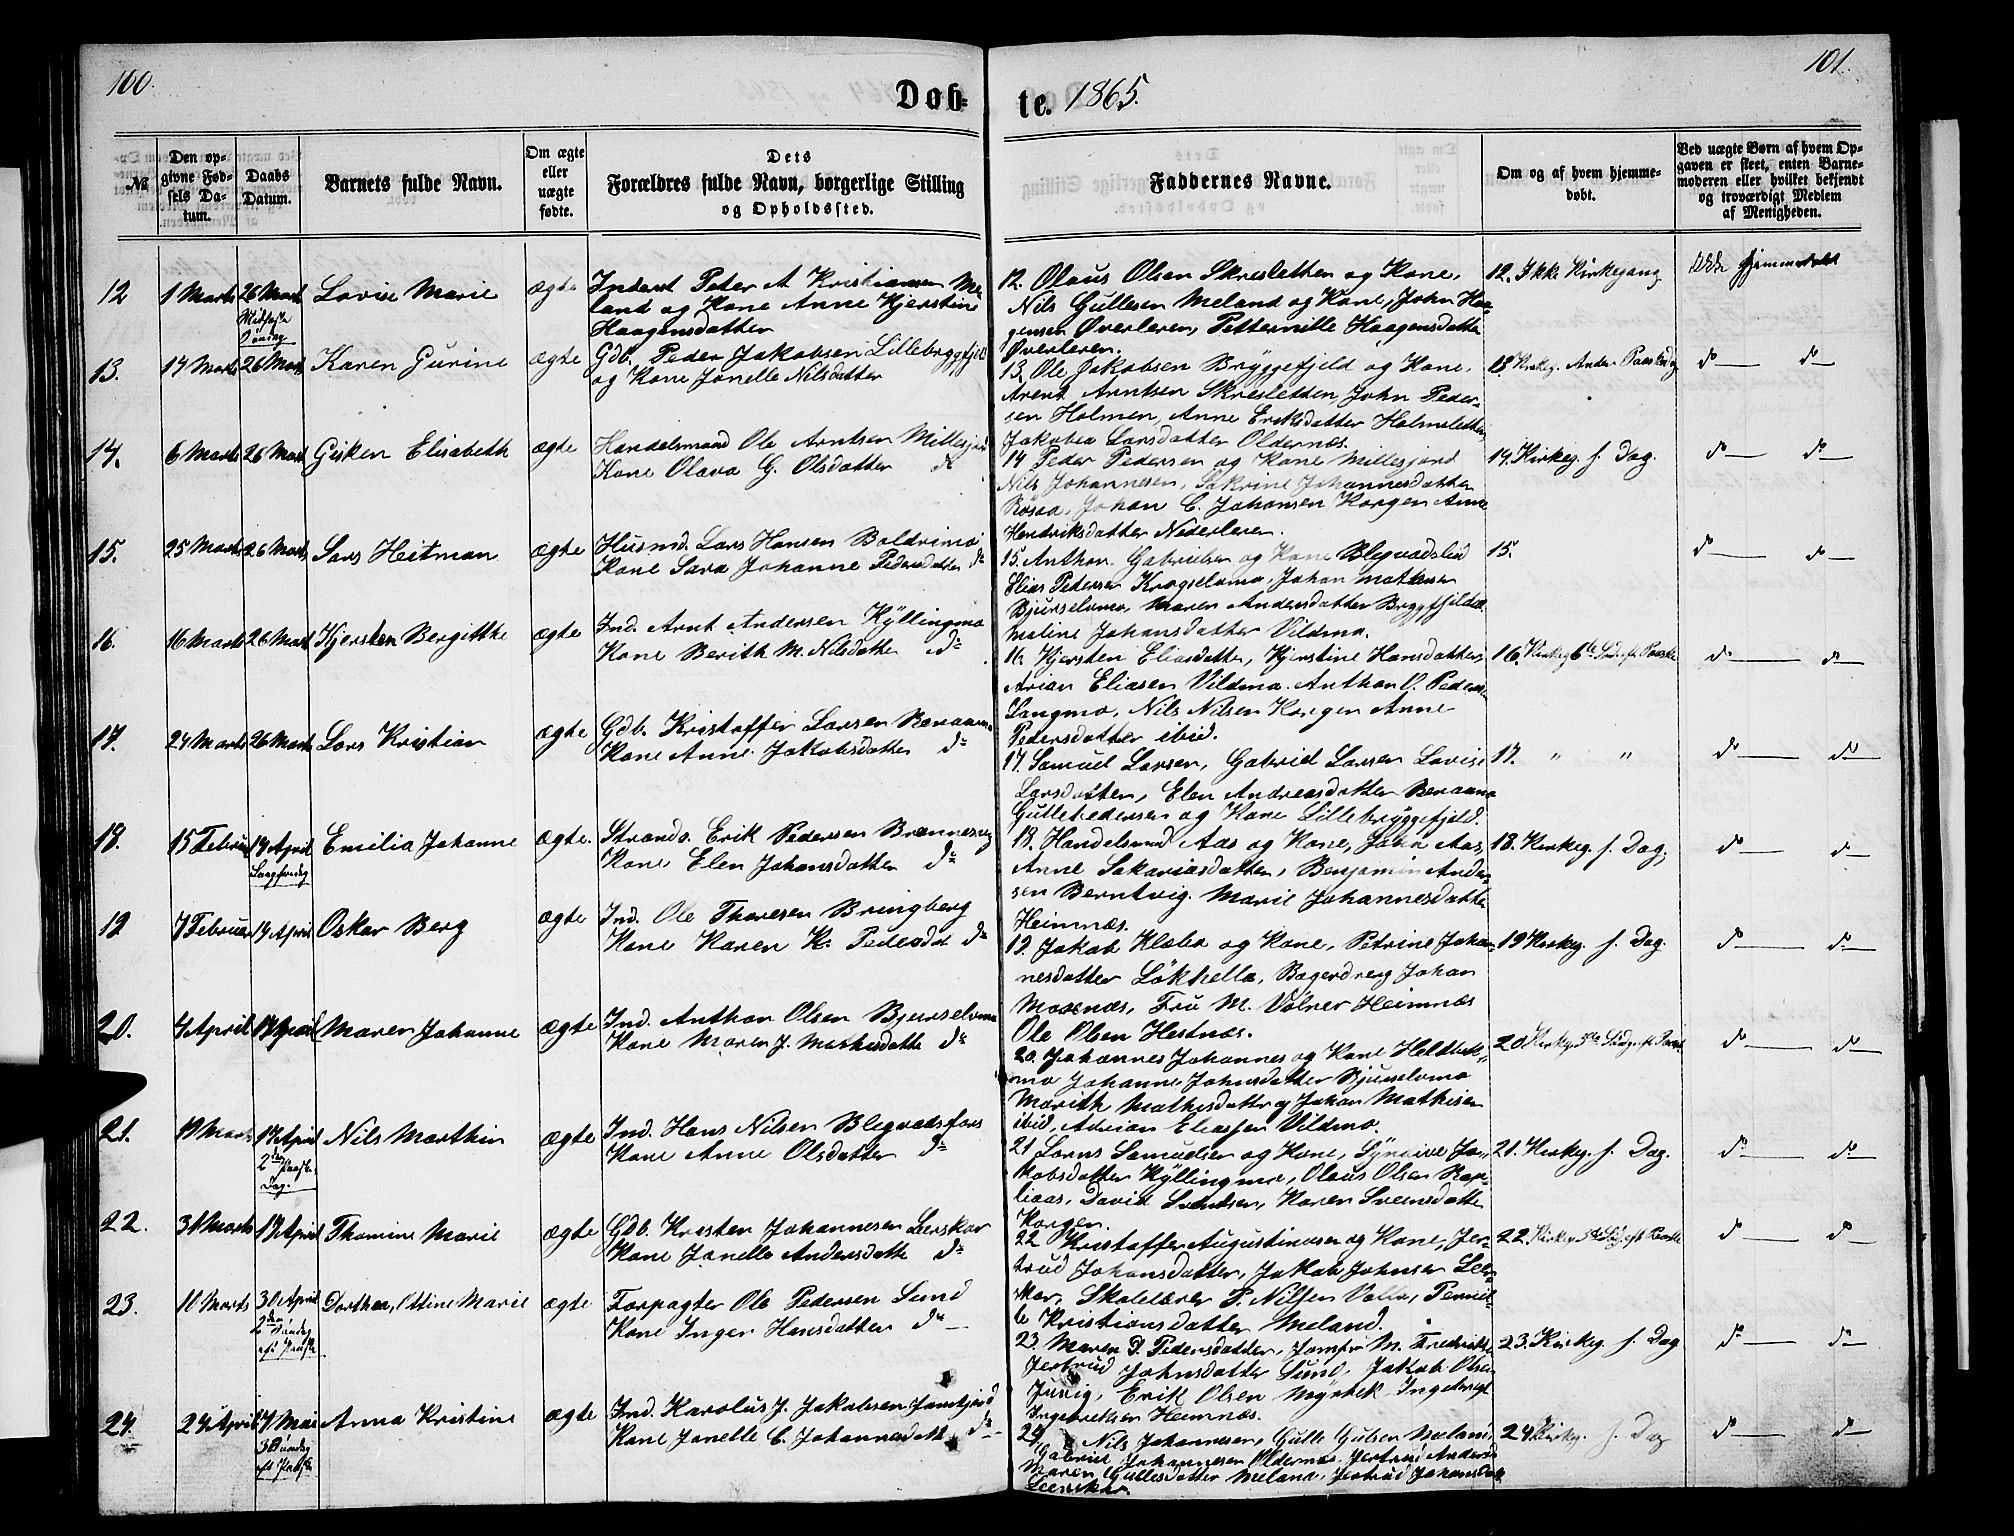 100.
101.
Døb-
te. 1865.
№
Den op-
givne Fød-
sels Da-
tum.
Daabs
Datum.
Barnets fulde Navn.
Om ægte
eller
uægte
fødte.
Dets
Forældres fulde Navn, borgerlige Stilling
og Opholdssted.
Faddernes Navne.
Om og af hvem hjemme-
døbt.
Ved uægte Børn af hvem Op-
gaven er skeet, enten Barne-
moderen eller hvilket bekjendt
og troværdigt Medlem
af Menigheden.
12 1 Marts 26 Marts Lovise Marie ægte
Midfaste
Søndag
Inderst Peter A Kristiansen Me-
land og Kone Anne Kjerstine
Haagensdatter
12. Olaus Olsen Skresletten og Kone,
Nils Gullesen Meland og Kone, John Haa-
gensen Øverleren, Petternille Haagensdatter
Øverleren.
12. Ikke Kirkegang
Ikke Hjemmedøbt
13. 14 Marts 26 Marts Karen Gurine ægte
Gdb. Peder Jakobsen Lillebryggfjeld
og Kone Janelle Nilsdatter
13. Ole Jakobsen Bryggefjeld og Kone,
Arent Arntsen Skresletten, John Peder-
sen Holmen, Anne Eriksdatter Holmsletten
Jakobea Larsdatter Oldernæs.
13 Kirkeg. Anden Paaskedag
do do
14. 6 Marts 26 Marts Gjsken Elisabeth ægte
Handelsmand Ole Arntsen Millesjord
Kone Olava G. Olsdatter do
14 Peder Pedersen og Kone Millesjord
Nils Johannesen, Sakrine Johannesdatter
Røsaa, Johan C. Johansen Korgen Anne
Hendriksdatter Nederleren.
14. Kirkeg. s. Dag.
do do
15. 25 Marts 26 Marts Lars Heitman ægte
Husmd. Lars Hansen Baldrimo
Kone Sara Johanne Pedersdatter do
15. Anthon Gabrielsen og Kone Blegvadslid
Elias Pedersen Krogselvmo, Johan Mathisen
Bjurselvmo, Maren Andersdatter Bryggfjelda.
Maline Johansdatter Vildmo.
15.
do do
16. 16 Marts 26 Marts Kjersten Bergitthe ægte
Ind. Arnt Andersen Kyllingmo
Kone Berith M. Nilsdatter do
16. Kjersten Eliasdatter, Kjerstine Hansdatter,
Arian Eliasen Vildmo. Anthon O. Peders.
Langmo, Nils Nilsen Korgen Anne
Pedersdatter ibid.
16. Kirkeg. 6te Sønd. eft Paaske
do do
17. 24 Marts 26 Marts Lars Kristian ægte
Gdb. Kristoffer Larsen Beraamo
Kone Anne Jakobsdatter do
17. Samuel Larsen, Gabriel Larsen Lovise
Larsdatter, Elen Andreasdatter Beraamo
Gulle Pedersen og Kone Lillebryggefjeld.
17. " "
do do
18. 15 Februar 14 April Emilia Johanne ægte.
Langfredag
Strands. Erik Pedersen Brennesvig
Kone Elen Johansdatter do
18. Handelsmnd Aas og Kone, John Aas,
Anne Sakariasdatter, Benjamin Ander-
sen Berntvig. Marie Johannesdatter
Heimnæs.
18. Kirkeg. s. Dag.
do do
19 7 Februar 14 April Oskar Berg ægte
Ind. Ole Thoresen Bringberg
Kone Karen K. Pedersdat do
19. Jakob Klæbo og Kone, Petrine Johan-
nesdatter Løkhella, Bagerdreng Johan
Mosenæs, Fru M. Vølner Heimnæs
Ole Olsen Hestnæs.
19 Kirkeg. s. Dag.
do do
20. 4 April 17 April Maren Johanne ægte
Ind. Anthon Olsen Bjurselvmo
Kone Maren J. Mathisdatte do
20. Johannes Johannes og Kone Heldbek-
mo Johanne Johnsdatter Bjurselvmo
Marith Mathisdatter og Johan Mathisen
ibid, Adrian Eliassen Vildmo.
20 Kirkeg. 5te Søndg. eft. Paaske
do do
21. 19 Marts 17 April Nils Marthin ægte
2den Paaske
Dag.
Ind. Hans Nilsen Blegvadsfors
Kone Anne Olsdatter do
21 Larns Samuelsen og Kone, Synnive Ja-
kobsdatter Kyllingmo, Olaus Olsen Rap-
liaas, David Svendsen, Karen Svensdatte
Korgen.
21. Kirkeg. s. Dag.
do do
22. 31 Marts 17 April Thomine Marie ægte
Gdb. Kristen Johannesen Leerskar
Kone Janelle Andersdatte do
22 Kristoffer Augustinusen og Kone, Jer-
trud Johansdatter, Jakob Johnsen Leer-
skar, Skolelærer P. Nilsen Valla, Pernil-
le Kristiansdatter Meland.
22. Kirkeg. 5te Søndg. eft Paaske
do do
23. 10 Marts 30 April Dorthea, Ottine Marie ægte
2den Søndag
eft Paaske
Forpagter Ole Pedersen Sund
Kone Inger Hansdatter do
23. Maren D. Pedersdatter, Jomfr M. Fredrikke
Jertrud Johnsdatter Sund, Jakob Olsen
Juvig, Erik Olsen Myrbek Ingebregt
Ingebrektsen Heimnæs.
23. Kirkeg. s. Dag
do do
24. 24 April 7 Mai Anna Kristine ægte
3 Søndag
eft Paaske
Ind. Karolus J. Jakobsen Famtjord
Kone Janelle C. Johannesdatt do
24 Nils Johannesen, Gulle Gulsen Meland
Gabriel Johannesen Oldernæs, Jertrud Andersd
Maren Gullesdatter Meland, Jertrud Johansdatt
Leerskar.
24 Kirkeg. s. Dag
do do